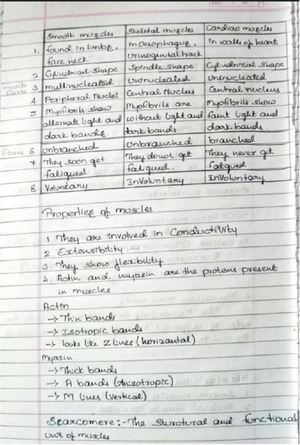 Smooth muscles Skeletal muscles Cardiac muscles
1. found in limbs, face, neck in Oesophagus, Urinogenital track in walls of heart
2. Cylindrical shape Spindle shape Cylindrical shape
3. multinucleated Uninucleated Uninucleated
4. Peripheral Nuclei Central Nucleus Central nucleus
5. Myofibrils show alternate light and dark bands Myofibrils are without light and dark bands Myofibrils show faint light and dark bands
6. unbranched Unbranched branched
7. They soon get fatigued They do not get fatigued They never get fatigued
8. Voluntary InVoluntary InVoluntary
muscle
fibres
Properties of muscles
1. They are involved in Conductivity
2. Extensibility
3. They show flexibility
4. Actin and myosin are the proteins present
in muscles
Actin
→ Thin bands
→ Isotropic bands
→ looks like Z lines (horizontal)
Myosin
→ Thick bands
→ A bands (Anisotropic)
→ M lines (vertical)
Searcomere :- The Structural and functional
unit of muscles